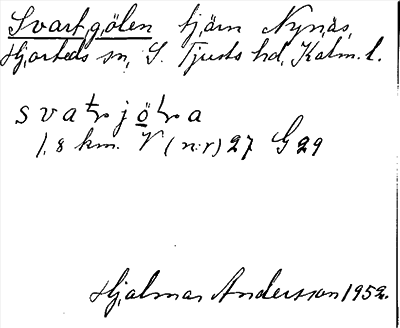 Svartgölen tjärn Nynäs,
Hjorteds sn, S. Tjusts hd, Kalm. l.
1,8 km. V (nr) 27 G 29
Hjalmar Andersson 1952.